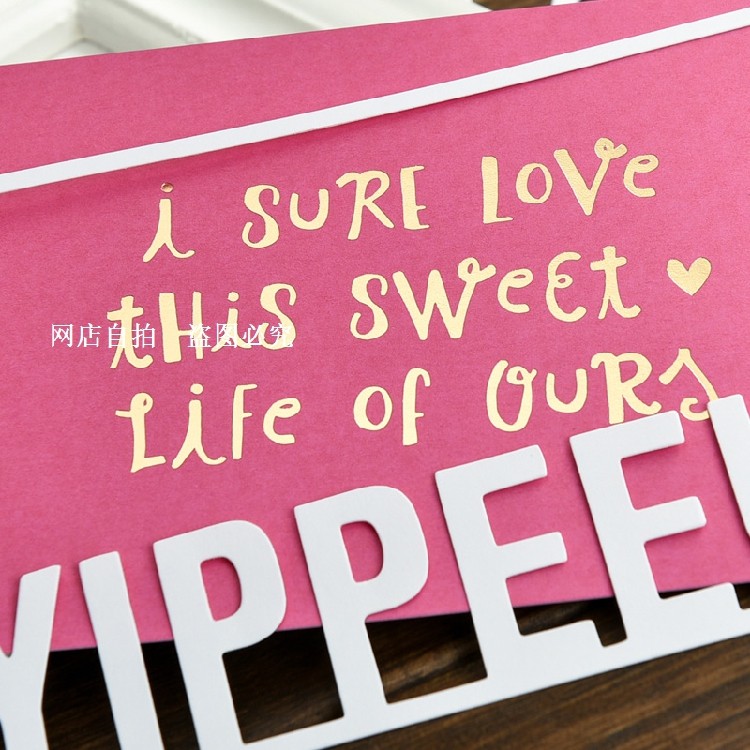 i SURE LOVE
tHiS SWeEt
网店自拍 盗图必究
LiFe OF OURS
YIPPEE!